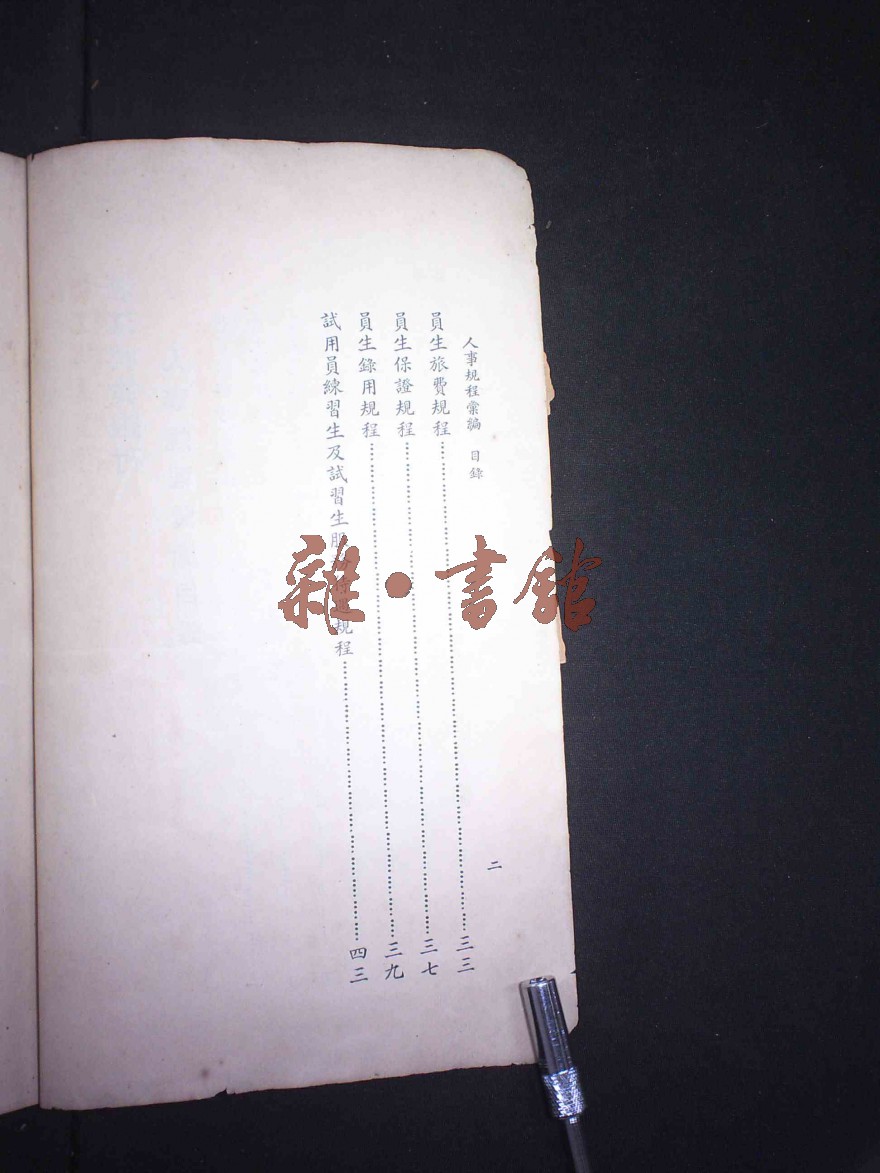 人事規程彙編　目錄
二
員生旅費規程……三三
員生保證規程……三七
員生錄用規程……三九
試用員練習生及試習生服務待遇規程……四三
雜·書館